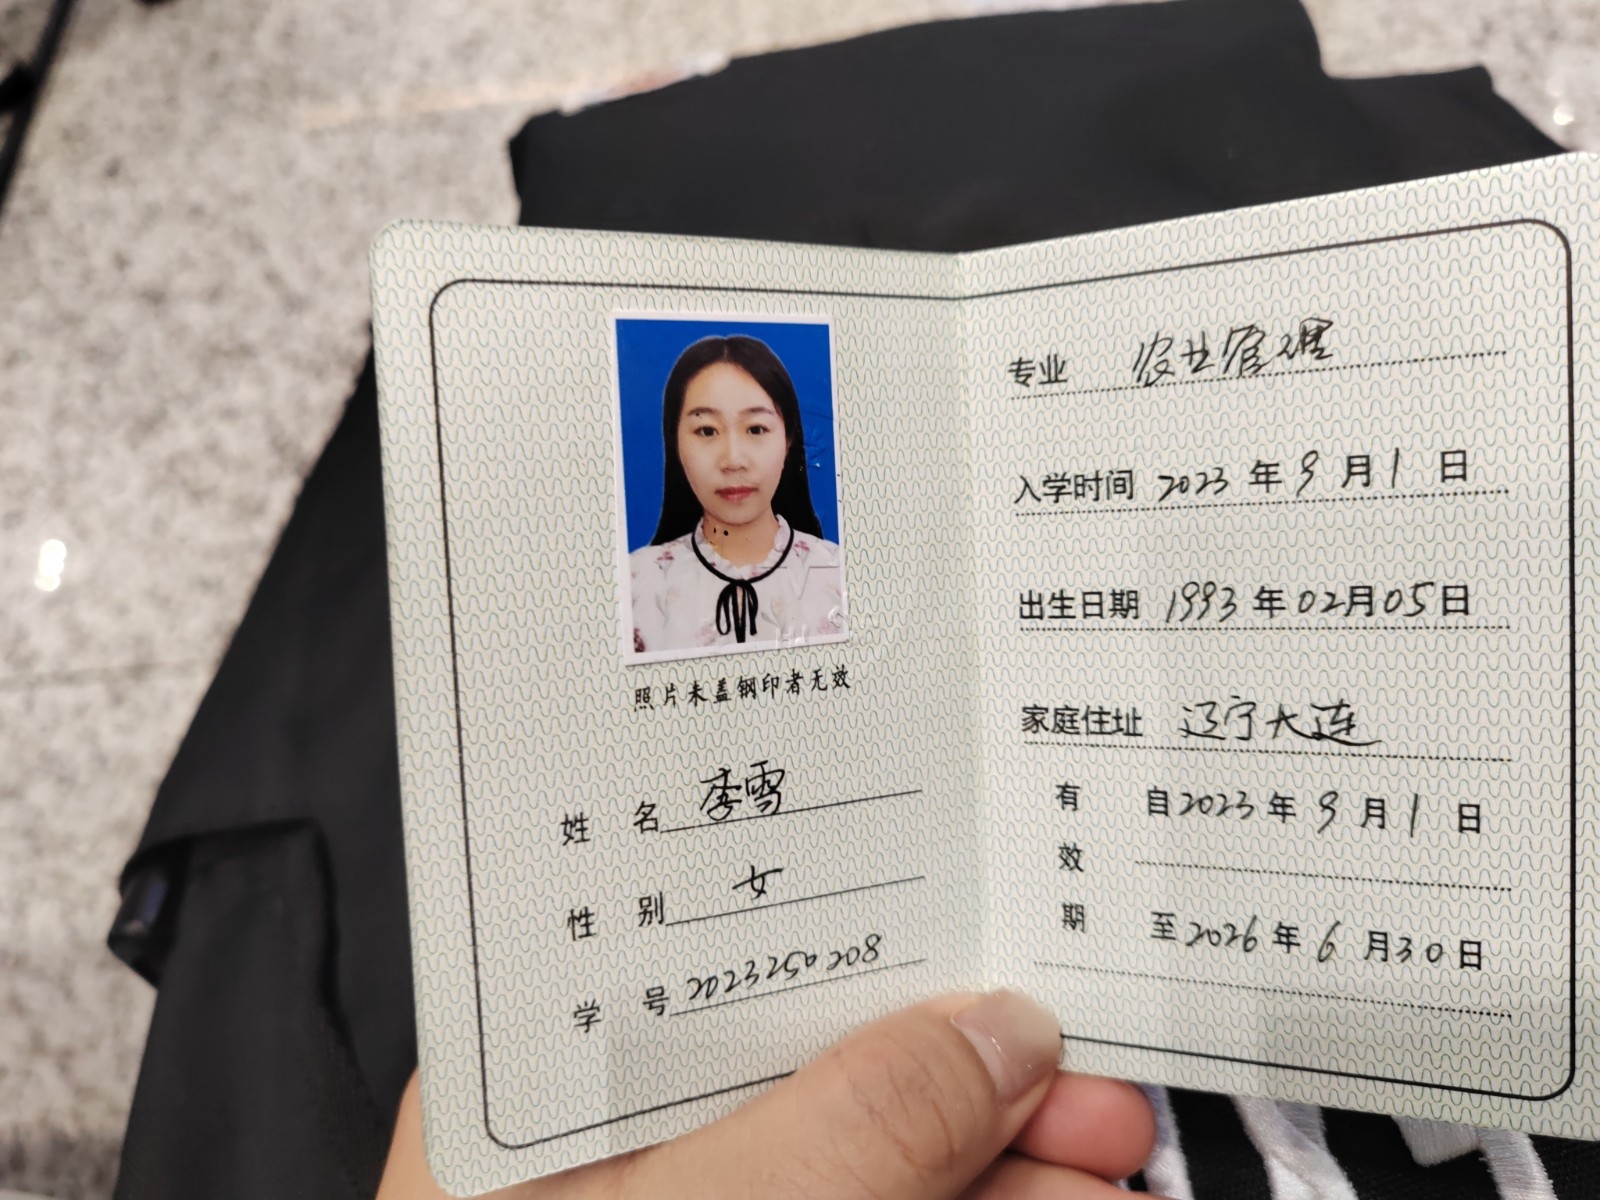 照片未盖钢印者无效
姓 名 李雪
性 别 女
学 号 2023250208
专业 农业管理
入学时间 2023 年 9 月 1 日
出生日期 1993 年 02 月 05 日
家庭住址 辽宁大连
有效期 自 2023 年 9 月 1 日
至 2026 年 6 月 30 日